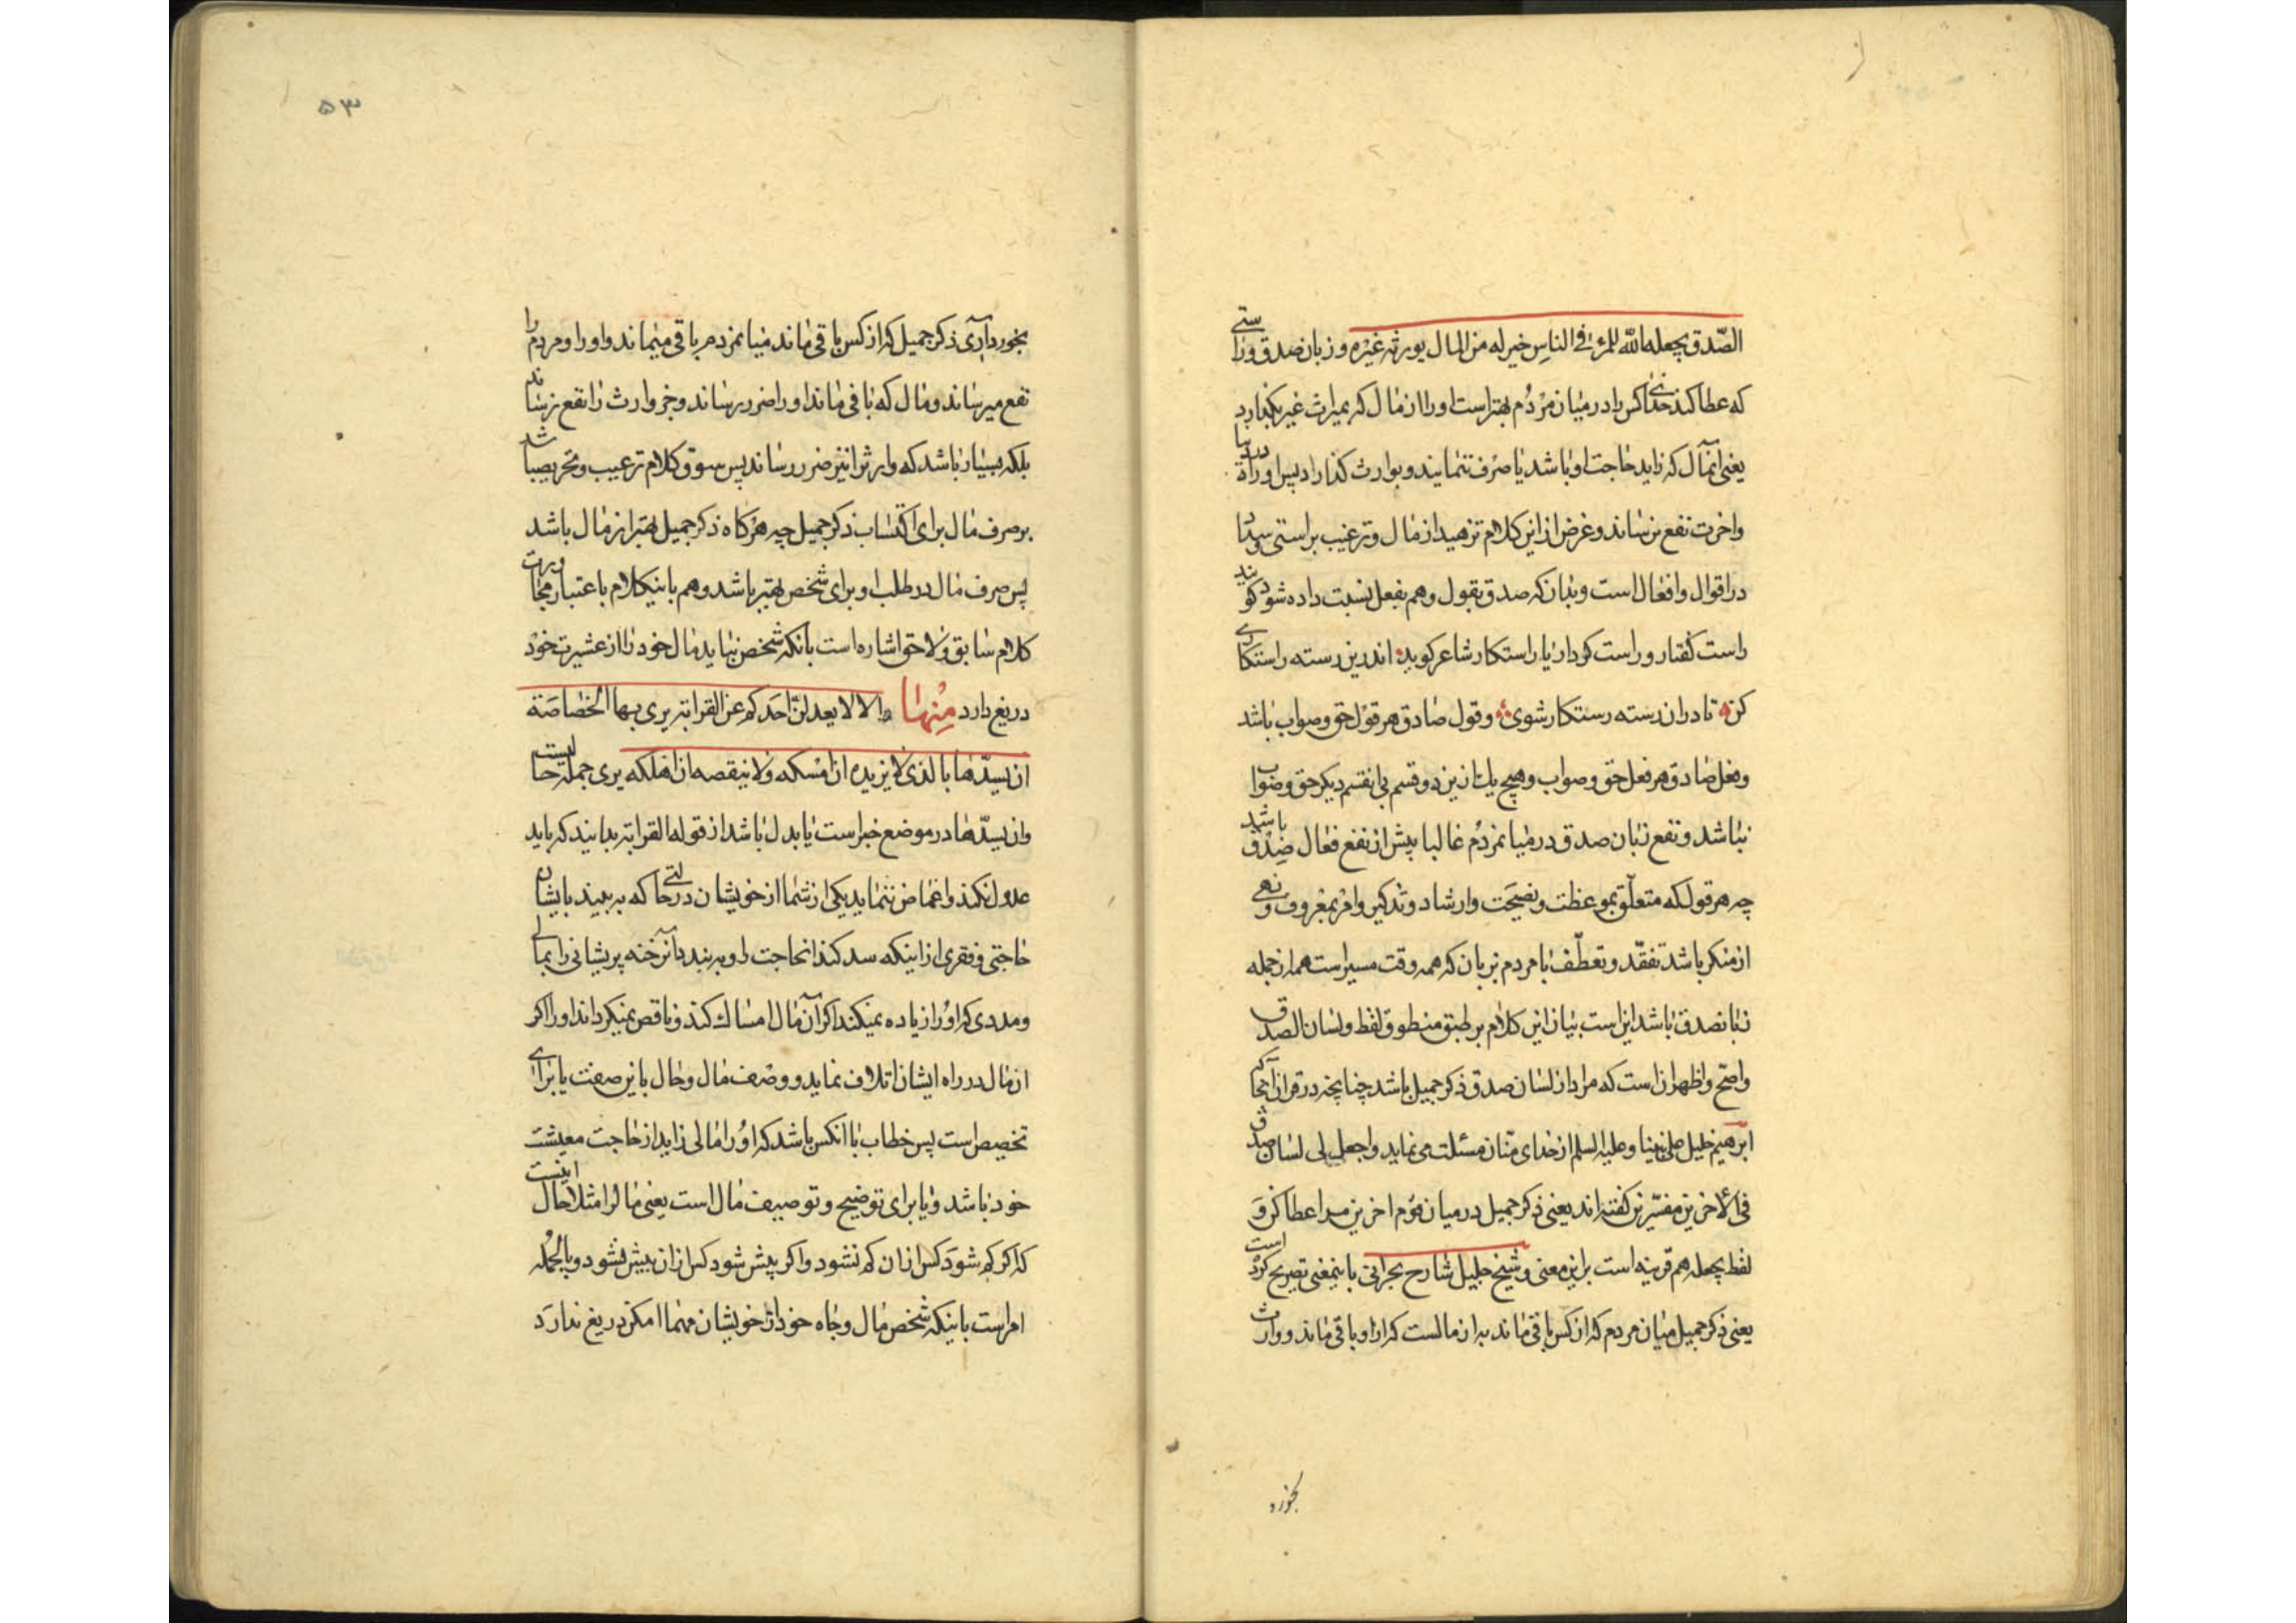 الصّدق یجعله الله للمرء فی الناس خیر له من المال یورثه غیره و زبان صدق و راستی
که عطا کند خدای کس را در میان مردم بهتر است او را از مال که بمیراث غیر بگذارد
یعنی انمال که زاید حاجت او باشد یا صرف ننماید و بوارث گذارد پس او را در دنیا
و اخرت نفع نرساند و غرض از این کلام تزهید از مال و ترغیب براستی و سداد
در اقوال و افعال است و بدانکه صدق بقول و هم بفعل نسبت داده شود گویند
راست گفتار و راست کردار یا راستکار شاعر گوید اندرین رسته راستکاری
کن تا دران رسته رستکار شوی و قول صادق هر قول حق و صواب باشد
و فعل صادق هر فعل حق و صواب و هیچ یک ازین دو قسم بی انقسم دیگر حق و صواب
نباشد و نفع زبان صدق در میانمردم غالبا بیش از نفع فعال صدق باشد
چه هر قول که متعلّق بموعظت و نصیحت و ارشاد و تذکیر و امر بمعروف و نهی
از منکر باشد تفقّد و تعطّف با مردم بزبان که همه وقت میسر است هم از جمله
زبانصدق باشد این است بیان این کلام بر طبق منطوق لفظ و لسان الصدق
واضح و اظهر ان است که مراد از لسان صدق ذکر جمیل باشد چنانچه در قران آنجا که
ابرهیم خلیل علی نبینا و علیه السلم از خدای منّان مسئلت می نماید واجعل لی لسان صدق
فی الاخرین مفسّرین گفته اند یعنی ذکر جمیل در میان قوم اخرین مرا عطا کن و
لفظ یجعله هم قرینه است براین معنی و شیخ جلیل شارح بحرانی باینمعنی تصریح کرده است
یعنی ذکر جمیل میان مردم که از کس باقی ماند به از مالست که از او باقی ماند و وارث
بخورد
۵۳
بخورد آری ذکر جمیل که از کس باقی ماند میانمردم باقی میماند و او را و مردم را
نفع میرساند و مال که باقی ماند او را ضرر رساند و جز وارث را نفع نرساند
بلکه بسیار باشد که وارث را نیز ضرر رساند پس سوق کلام ترغیب و تحریص باشد
بر صرف مال برای اکتساب ذکر جمیل چه هرگاه ذکر جمیل بهتر از مال باشد
پس صرف مال در طلب او برای شخص بهتر باشد و هم باینکلام باعتبار مجاورت
کلام سابق و لاحق اشاره است بانکه شخص نباید مال خود را از عشیرت خود
دریغ دارد منها الا لا یعدلنّ احدکم عن القرابة یری بها الخصاصة
ان یسدّها بالذی لا یزیده ان امسکه و لا ینقصه ان اهلکه یری جمله حالیست
و ان یسدّها در موضع خبر است یا بدل باشد از قوله القرابة بدانید که باید
عدول نکند و اغماض ننماید یکی از شما از خویشان در حالتی که ببیند بایشان
حاجتی و فقری از اینکه سد کند انحاجت را و ببندد آنرخنه پریشانی را بمالی
و مددی که او را زیاده نمیکند اگر آن مال امساک کند و ناقص نمیگرداند او را اگر
ان مال در راه ایشان اتلاف نماید و وصف مال و حال باین صفت یا برای
تخصیص است پس خطاب با انکس باشد که او را مالی زاید از حاجت معیشت
خود باشد و یا برای توضیح و توصیف مال است یعنی مال را مثلا حال اینست
که اگر کم شود کس ازان کم نشود و اگر بیش شود کس ازان بیش نشود و بالجمله
امر است باینکه شخص مال و جاه خود از خویشان مهما امکن دریغ ندارد